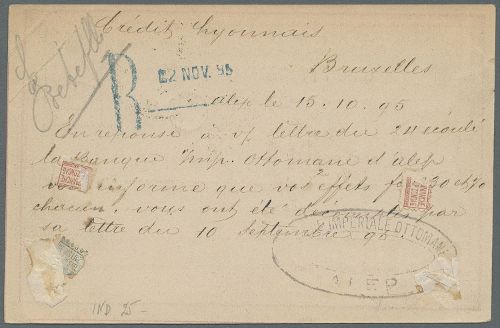 Crédit Lyonnais
Bruxelles
R
02 NOV. 95
alep le 15.10.95
En reponse à v/ lettre du 24 écoulé
la Banque Imp. Ottomane d'alep
informe que vos effets 30 et 70
chacun, vous ont été par
sa lettre du 10 Septembre 95
IMPERIALE OTTOMANE
ALEP
IND 25-